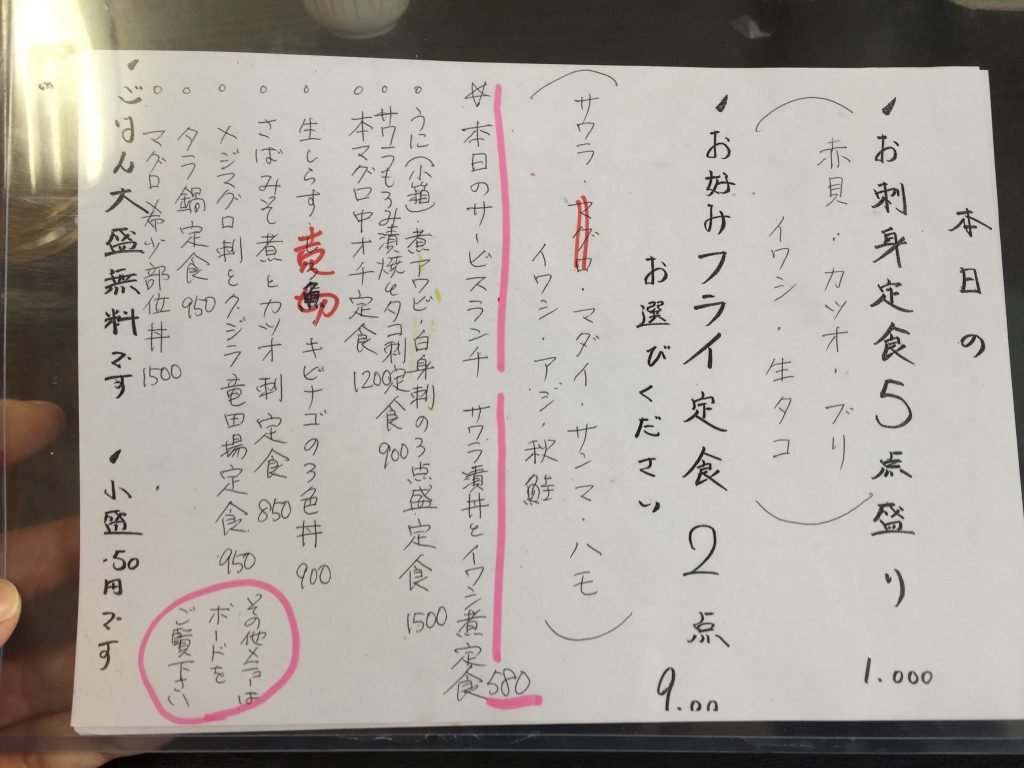 本日の
お刺身定食5点盛り 1.000
(赤貝・カツオ・ブリ
イワシ・生タコ)
お好みフライ定食 2点 9.00
お選びください
(サワラ・マグロ・マダイ・サンマ・ハモ
イワシ・アジ・秋鮭)
☆本日のサービスランチ サワラ漬丼とイワシ煮定食 580
うに(小箱)煮アワビ・白身刺の3点盛定食 1500
サワラもろみ漬焼とタコ刺定食 900
本マグロ中オチ定食 1200
生しらす・ キビナゴの3色丼 900
売切
さばみそ煮とカツオ刺定食 850
メジマグロ刺とクジラ竜田場定食 950
タラ鍋定食 950
マグロ希少部位丼 1500
ごはん大盛無料です 小盛.50円です
その他メニューは
ボードを
ご覧下さい